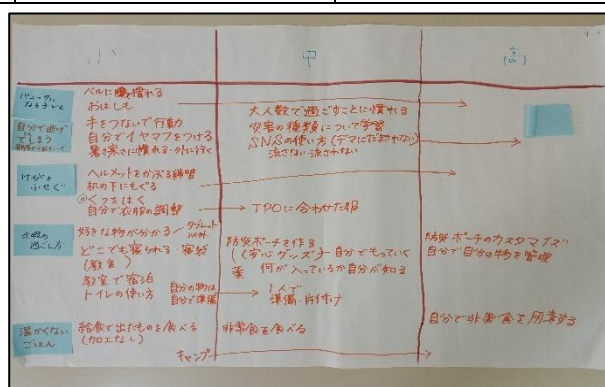 小
中
高
パニックに
なる子ども
ベルに慣れる
おはしも
自分で逃げ
てしまう
手をつないで行動
自分でイヤマフをつける
暑さ寒さに慣れる・外に行く
大人数で過ごすことに慣れる
災害の種類について学習
SNSの使い方(デマにだまされない)
流さない 流されない
けがを
ふせぐ
ヘルメットをかぶる練習
机の下にもぐる
◎くつをはく
自分で衣服の調整
TPOに合わせた服
余暇の
過ごし方
好きな物が分かる
タブレット
以外
どこでも寝られる・寝袋
(教室)
教室で宿泊
トイレの使い方
自分の物は
自分で準備
防災ポーチを作る
(安心グッズ)
自分でもっていく
薬
何が入っているか自分が知る
1人で
準備・片付け
防災ポーチのカスタマイズ
自分で自分の物を管理
温かくない
ごはん
給食で出たものを食べる
(加工なし)
非常食を食べる
自分で非常食を用意する
キャンプ